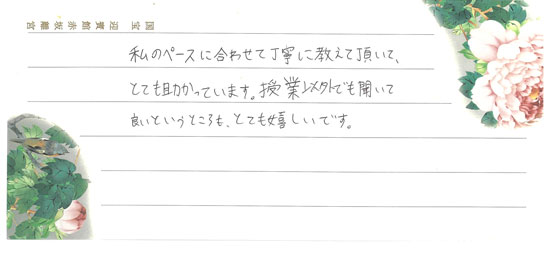 国宝 迎賓館赤坂離宮
私のペースに合わせて丁寧に教えて頂いて、
とても助かっています。授業以外でも聞いて
良いというところも、とても嬉しいです。